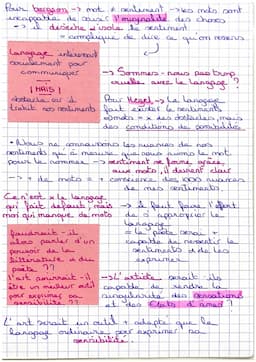 Pour bergson → mot ≠ sentiment → les mots sont
incapables de saisir l'originalité des choses
→ il dessèche / isole le sentiment
= compliqué de dire ce qu'on ressent
Langage intéressant
socialement pour
communiquer
! MAIS !
obstacle, ou il
trahit nos sentiments
→ Sommes-nous pas trop
cruelles avec le langage ?
Pour Hegel → Le langage
fait exister le sentiment,
mots = x des obstacles mais
des conditions de possibilités
• Nous ne connaissons les nuances de nos
sentiments qu'à mesure que nous avons le mot
pour le nommer. → sentiment se forme grâce
aux mots, il devient clair
→ + de mots = + connaissance des nuances
de mes sentiments
Ce n'est x le langage
qui fait défaut, mais
moi qui manque de mots
→ Il faut faire l'effort
de s'approprier le
langage
= Le poète serait +
capable de ressentir les
sentiments et de les
exprimer
faudrait-il
alors parler d'un
pouvoir de la
littérature & du
poète ??
l'art pourrait-il
être un meilleur outil
pour exprimer sa
sensibilité ??
→ L'artiste serait-il
capable de rendre la
singularité des sensations
et des états d'âmes ?
L'art serait un outil + adapté que le
langage ordinaire pour exprimer sa
sensibilité.